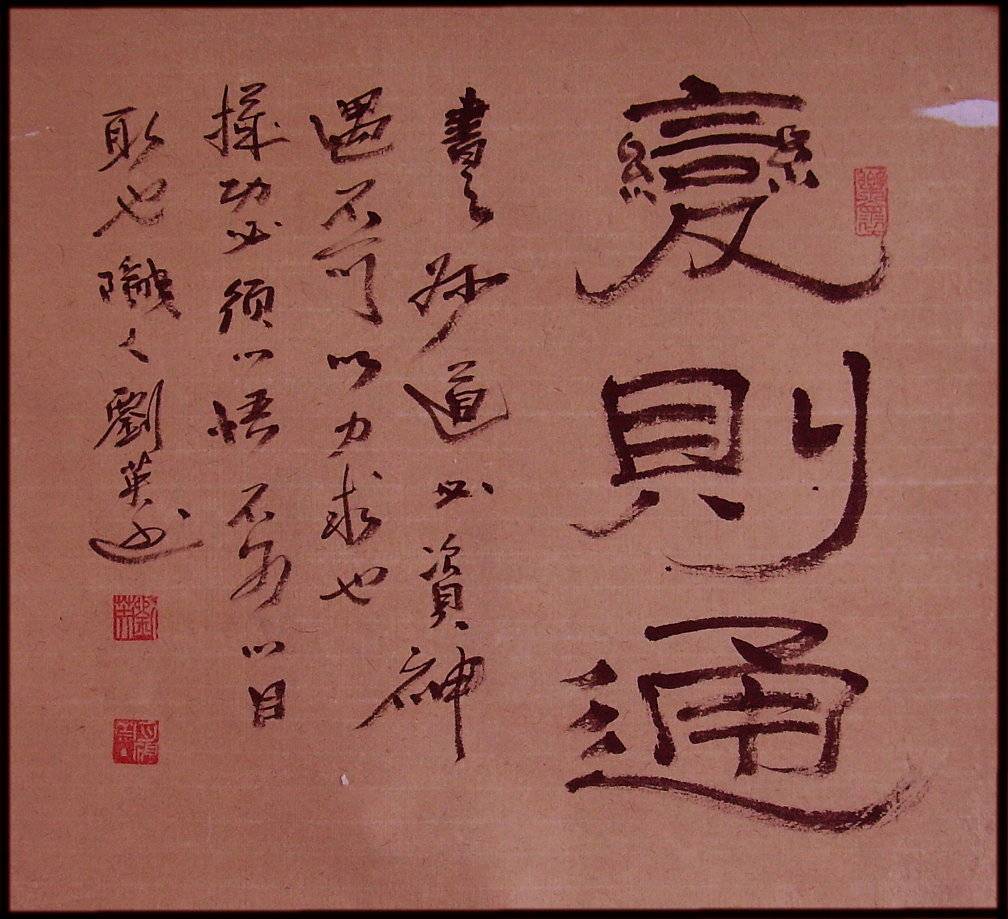 變則通
書之妙道必資神
遇不可以力求也
機功必須心悟不可以目
取也 劉英